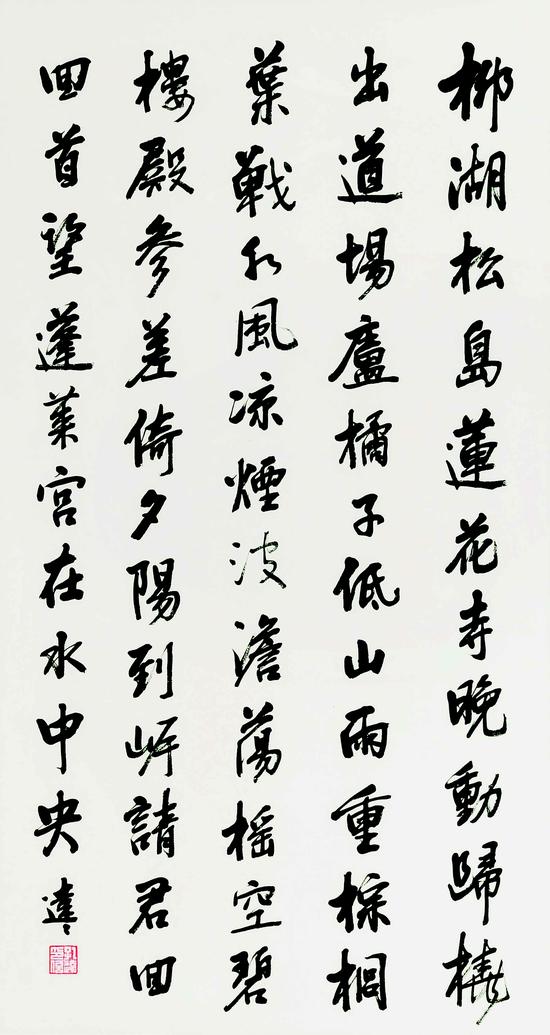 柳湖松島蓮花寺晚動歸橈
出道場廬橘子低山雨重棕櫚
葉戰水風凉煙波澹蕩搖空碧
樓殿參差倚夕陽到岸請君回
回首望蓬萊宮在水中央